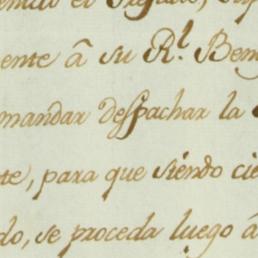 ente â su R.l Ben
mandar despachar la
te, para que siendo cie
do, se proceda luego â